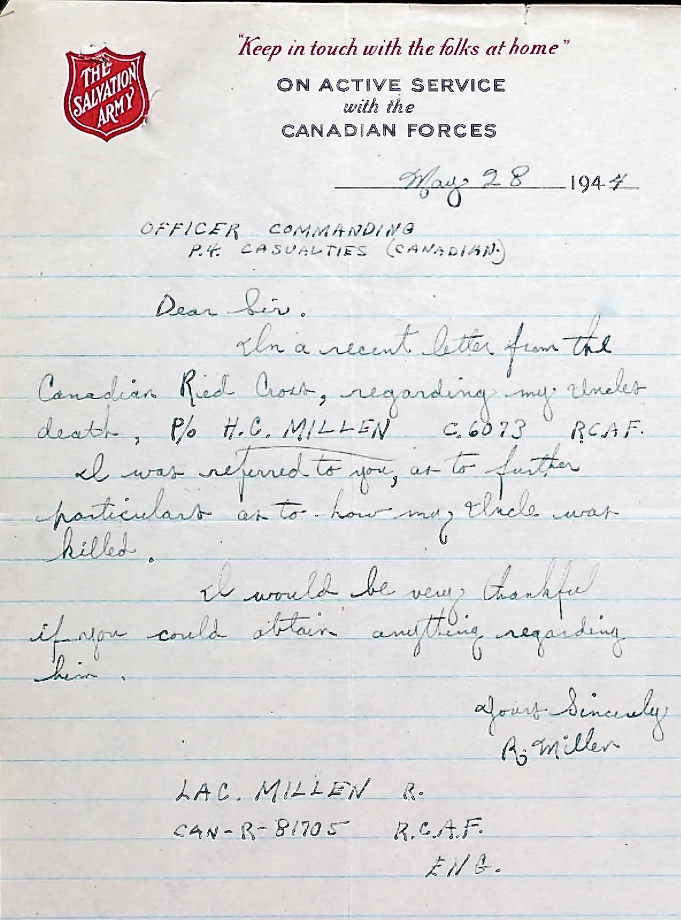 THE
SALVATION
ARMY
"Keep in touch with the folks at home"
ON ACTIVE SERVICE
with the
CANADIAN FORCES
May 28 1944
OFFICER COMMANDING
P.4. CASUALTIES (CANADIAN.)
Dear Sir.
In a recent letter from the
Canadian Ried Cross, regarding my Uncles
death, P/o H.C. MILLEN C.6073 RCAF.
I was referred to you, as to further
particulars as to how my Uncle was
killed.
I would be very thankful
if you could obtain anything regarding
him.
Yours Sincerely
R. Millen
LAC. MILLEN R.
CAN-R-81705 R.C.A.F.
ENG.